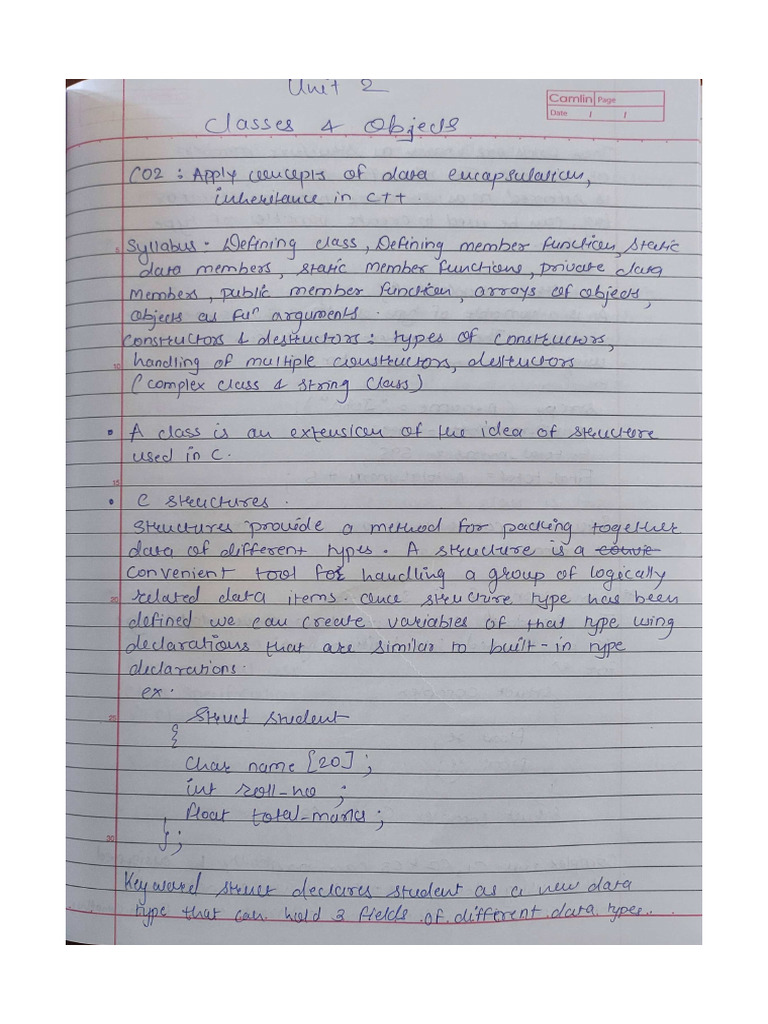 Unit 2
Camlin Page
Date / /
Classes & Objects
CO2 : Apply concepts of data encapsulation,
inheritance in C++.
5
Syllabus : Defining class, Defining member function, static
data members, static member functions, private data
members, public member function, arrays of objects,
objects as fuⁿ arguments.
Constructors & destructors : types of constructors,
10
handling of multiple constructors, destructors
(complex class & string class)
• A class is an extension of the idea of structure
used in C.
15
• C structures.
Structures provide a method for packing together
data of different types. A structure is a
convenient tool for handling a group of logically
20
related data items. Once structure type has been
defined we can create variables of that type using
declarations that are similar to built-in type
declarations.
ex.
25
Struct student
{
Char name [20] ;
int roll-no ;
float total-marks ;
30
} ;
Keyword struct declares student as a new data
type that can hold 3 fields of different data types.